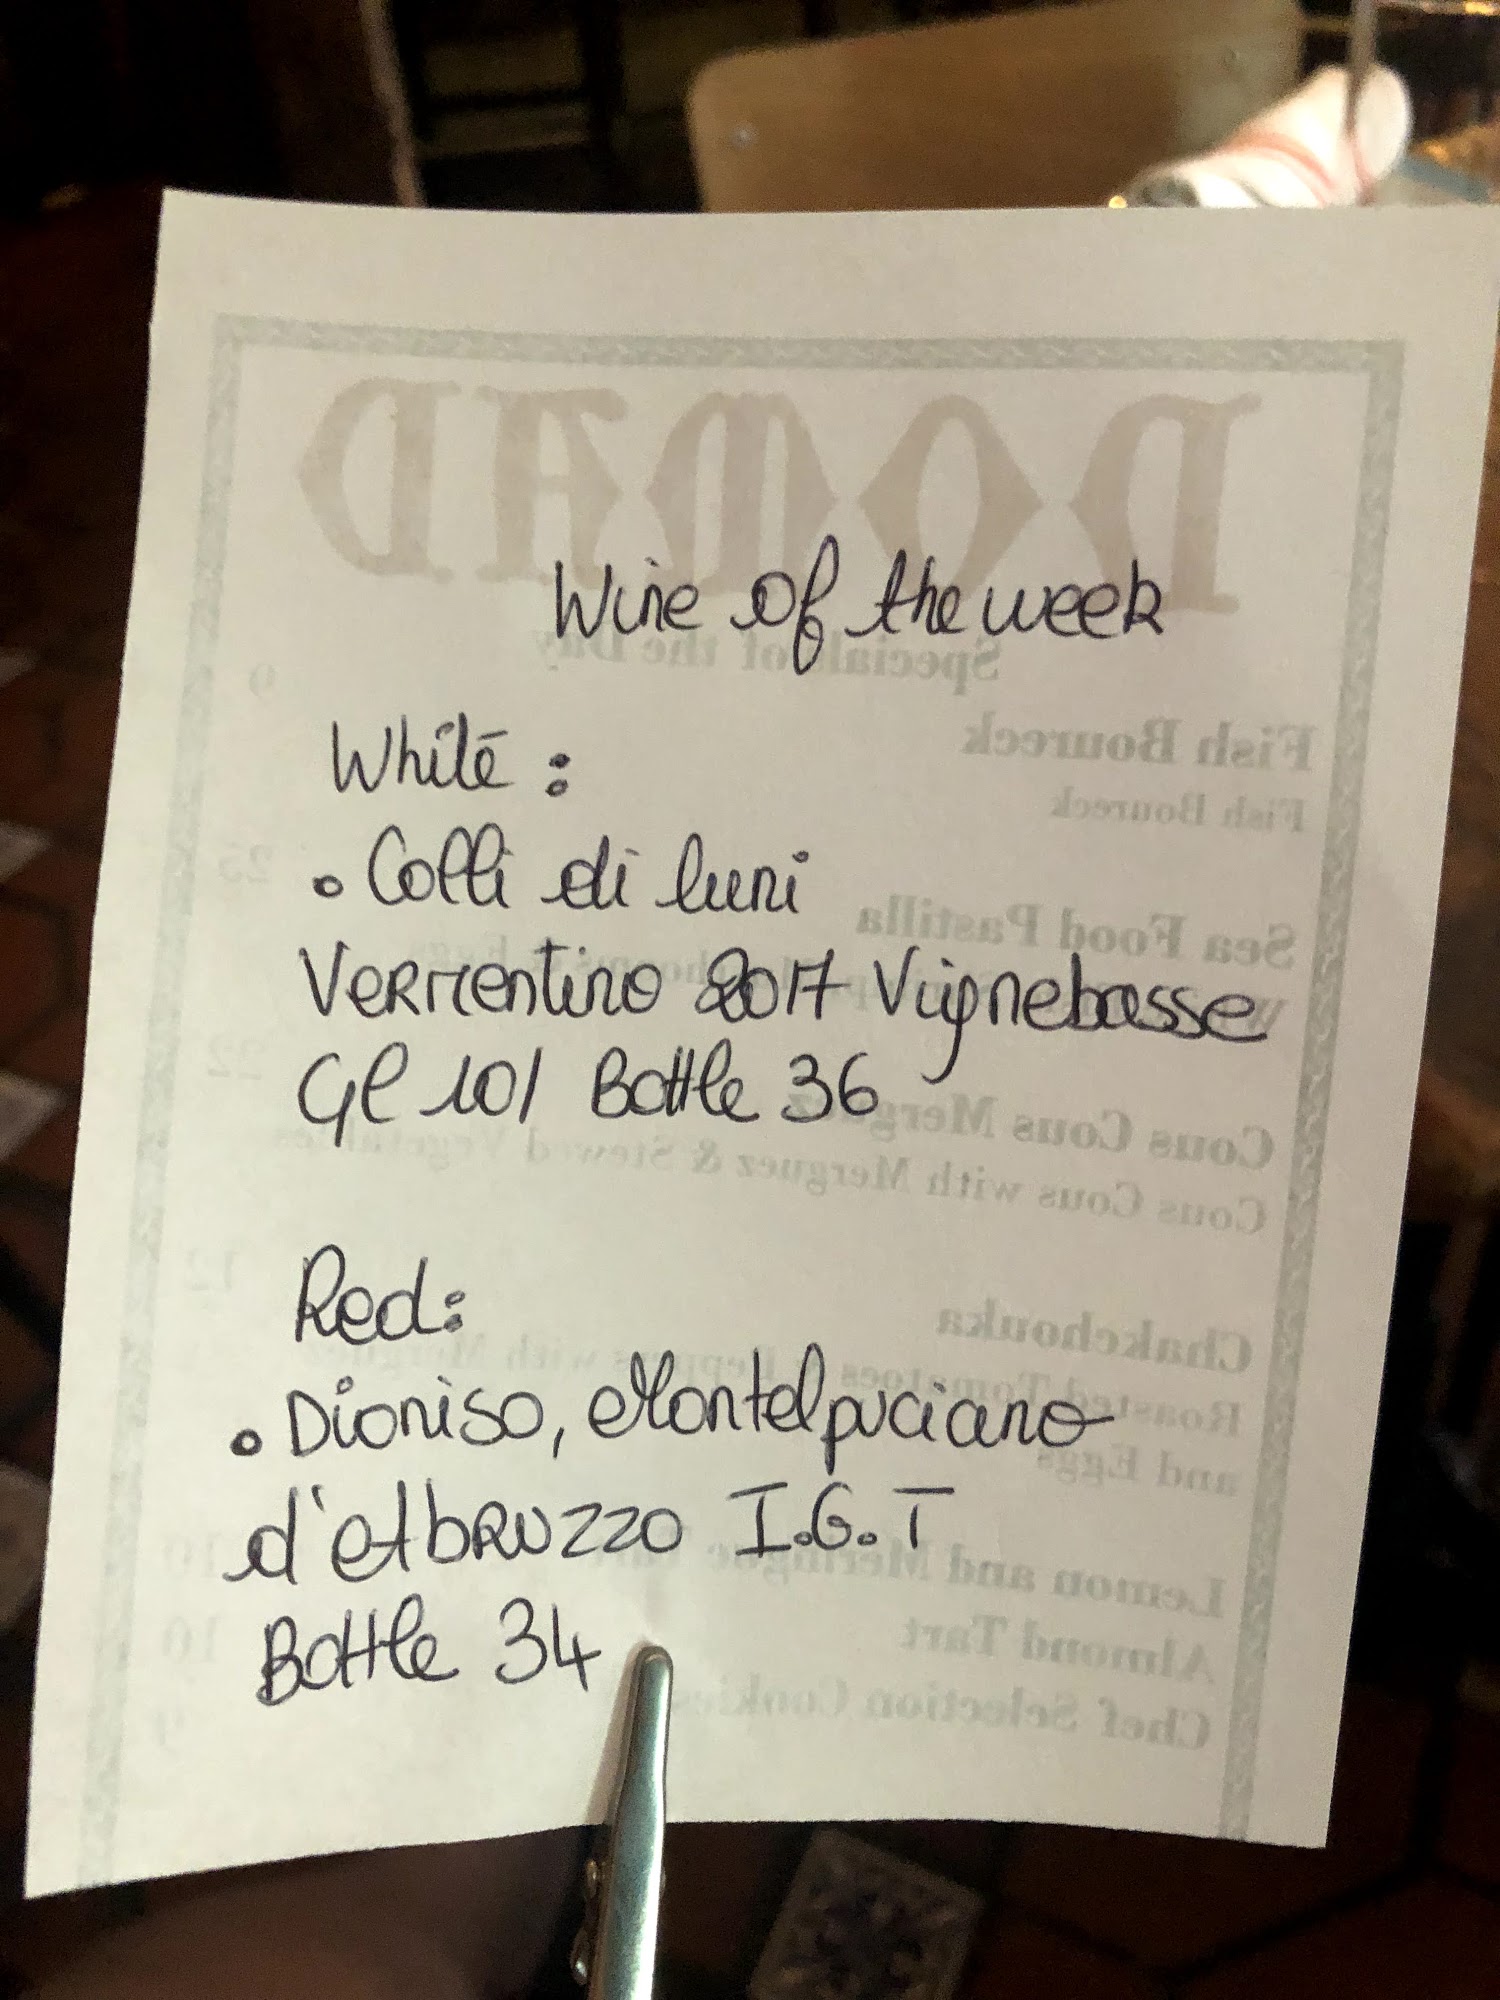 NOMAD
Wine of the week
Special of the Day
9
White :
Fish Boureck
Fish Boureck
• Colli di luni
25
Sea Food Pastilla
Vermentino 2017 Vignebasse
Gl 10/ Bottle 36
Cous Cous Merguez
Cous Cous with Merguez & Stewed Vegetables
Red:
12
Chakchouka
• Dioniso, Montelpuciano
Roasted Tomatoes Peppers with Merguez
and Eggs
d'Abruzzo I.G.T
10
Lemon and Meringue
Bottle 34
Almond Tart
10
Chef Selection Cookies
9